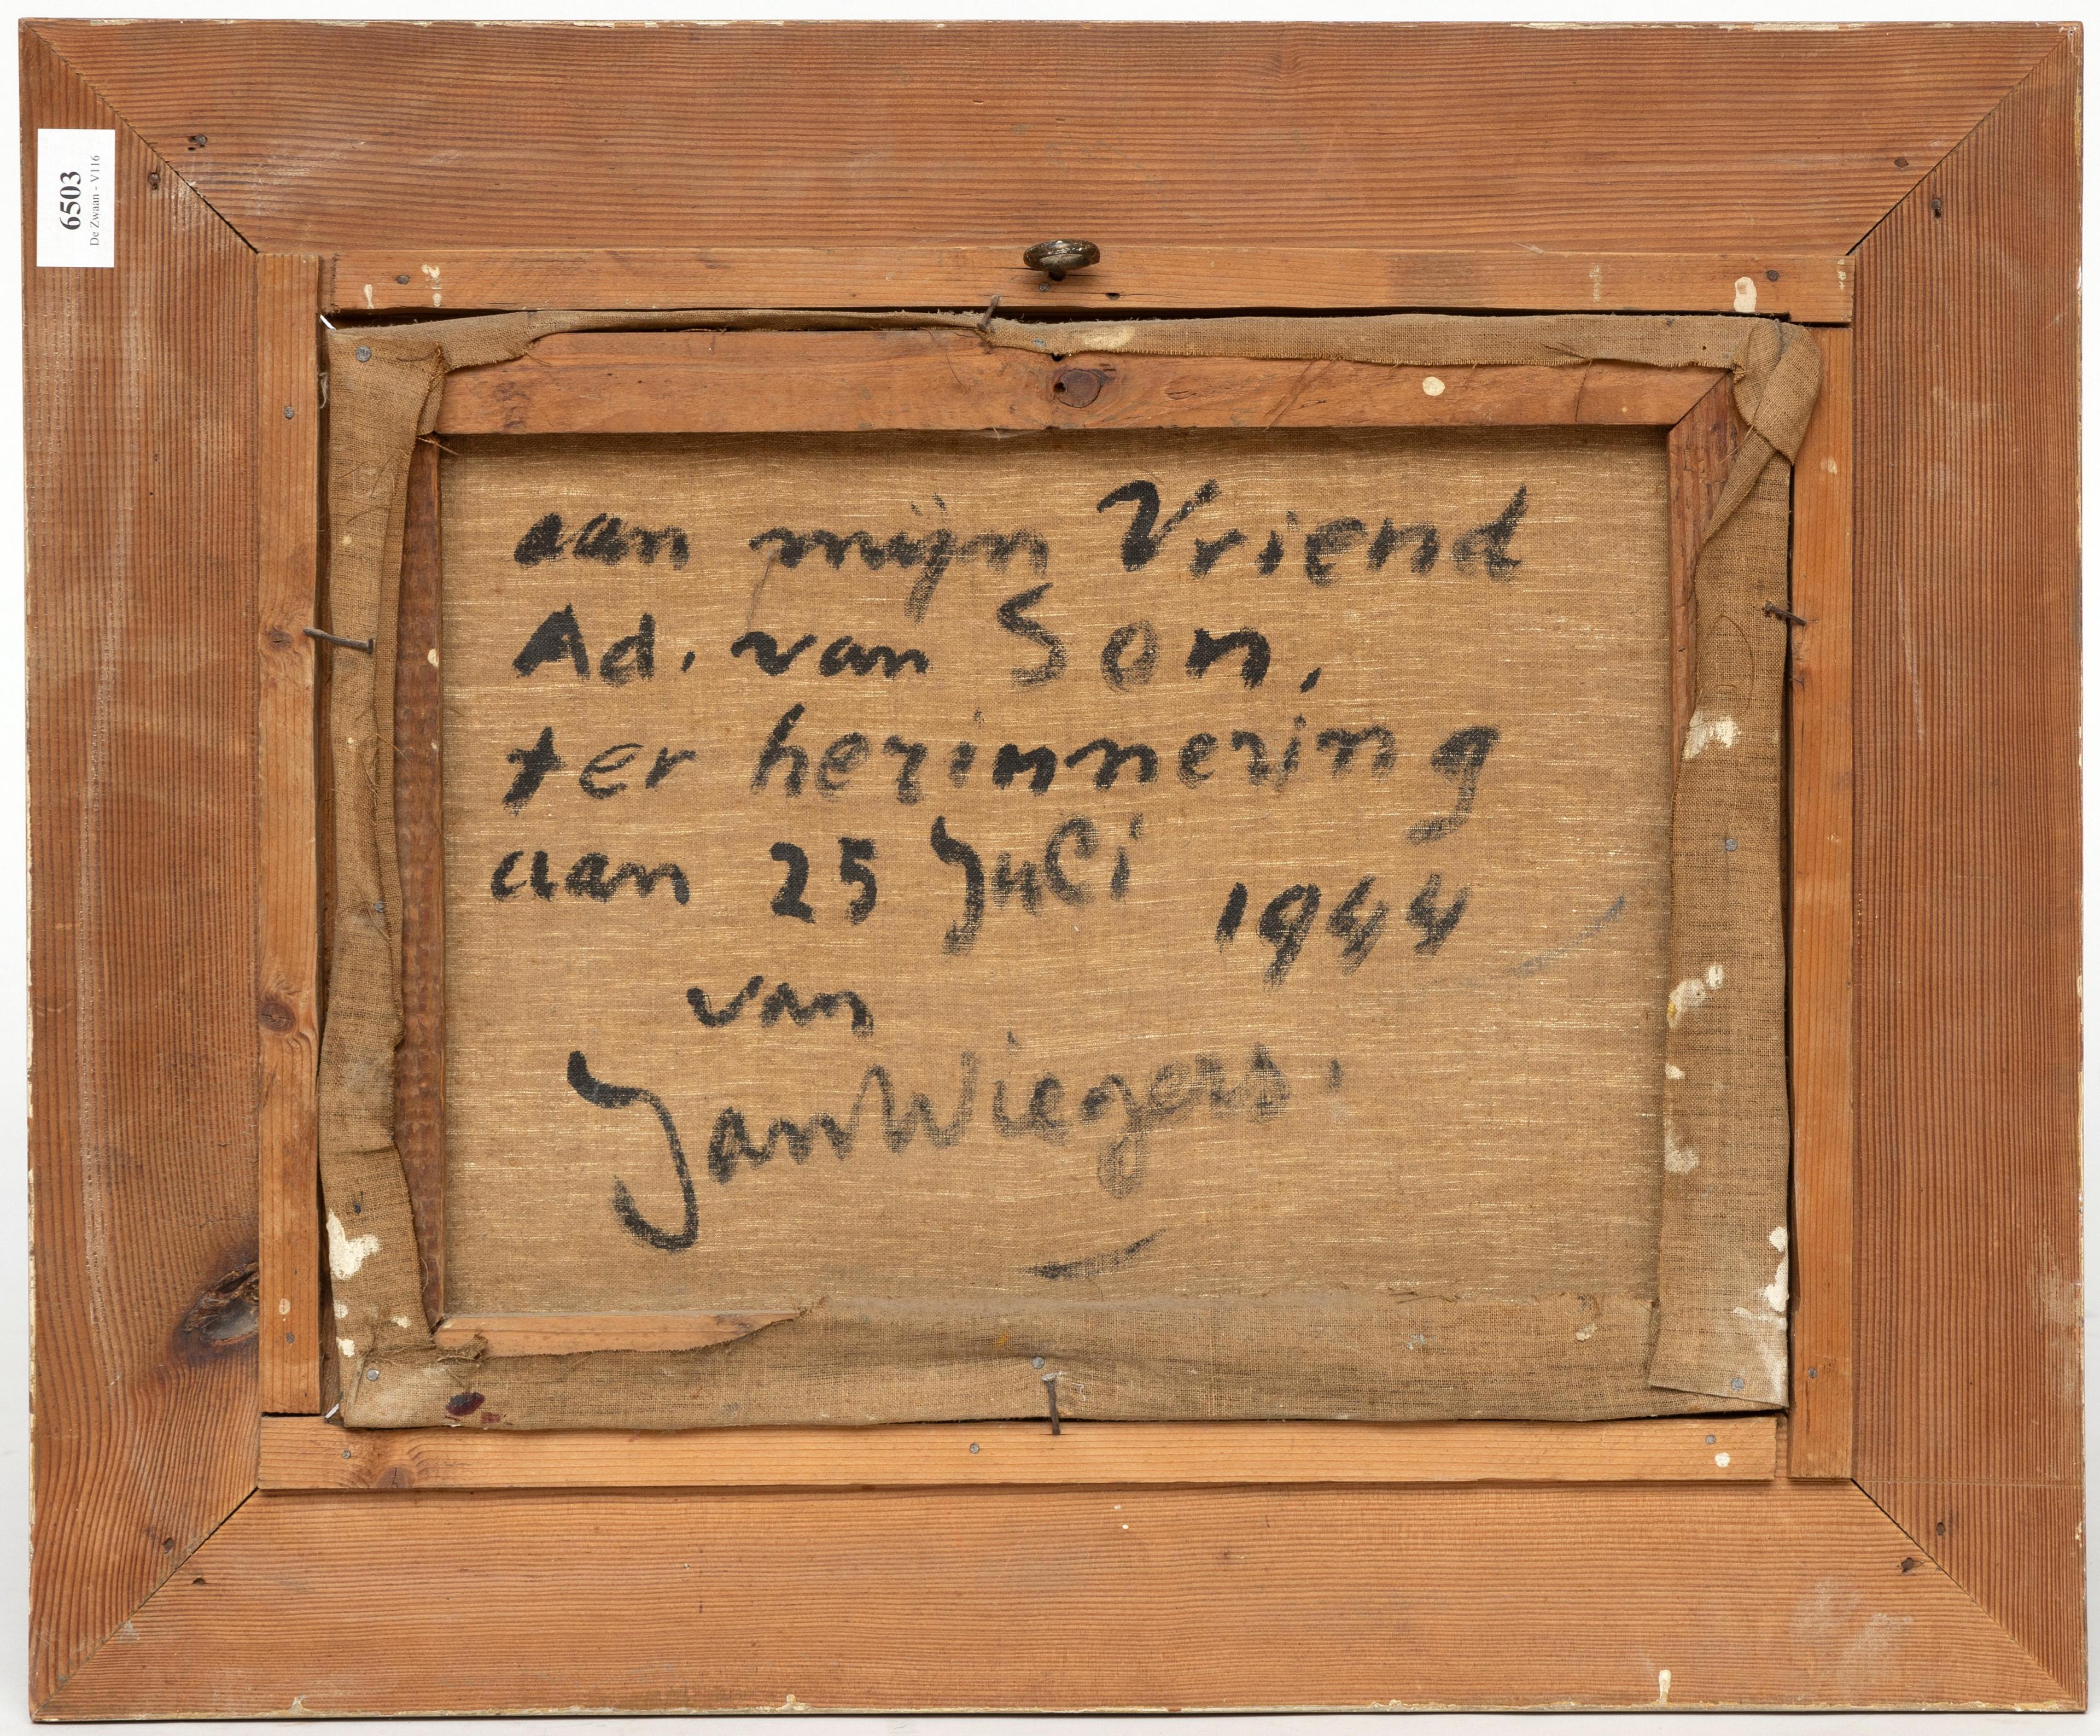 6503
De Zwaan - V116
aan mijn Vriend
Ad. van Son,
ter herinnering
aan 25 Juli 1944
van
Jan Wiegers.